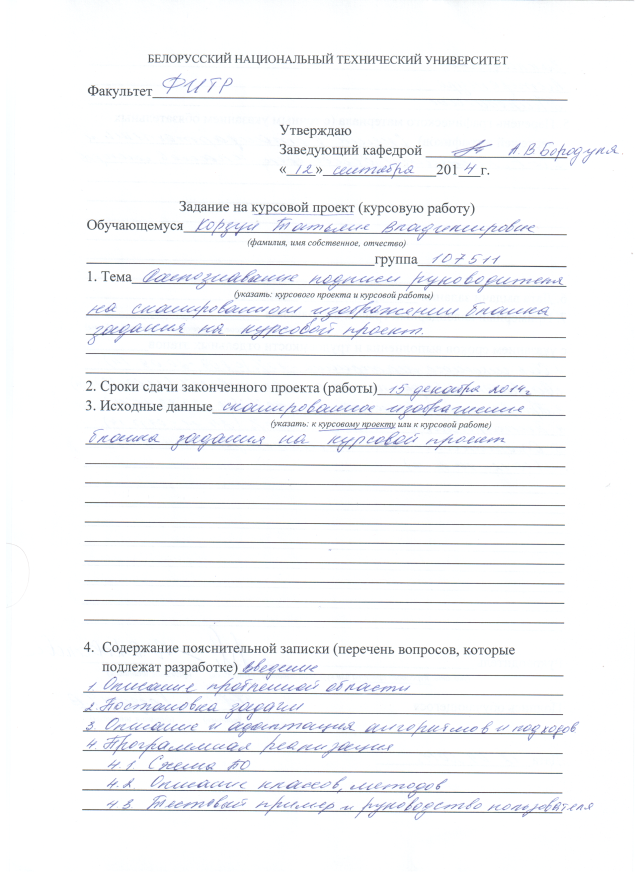 БЕЛОРУССКИЙ НАЦИОНАЛЬНЫЙ ТЕХНИЧЕСКИЙ УНИВЕРСИТЕТ
Факультет ФИТР
Утверждаю
Заведующий кафедрой А В Бородуля
« 12 » сентября 2014 г.
Задание на курсовой проект (курсовую работу)
Обучающемуся Корзун Татьяне Владимировне
(фамилия, имя собственное, отчество)
группа 107511
1. Тема Распознавание подписи руководителя
(указать: курсового проекта и курсовой работы)
на сканированном изображении бланка
задания на курсовой проект.
2. Сроки сдачи законченного проекта (работы) 15 декабря 2014г
3. Исходные данные сканированное изображение
(указать: к курсовому проекту или к курсовой работе)
бланка задания на курсовой проект
4. Содержание пояснительной записки (перечень вопросов, которые
подлежат разработке) введение
1. Описание проблемной области
2. Постановка задачи
3. Описание и адаптация алгоритмов и подходов
4. Программная реализация
4.1 Схема ПО
4.2 Описание классов, методов
4.3 Тестовый пример и руководство пользователя